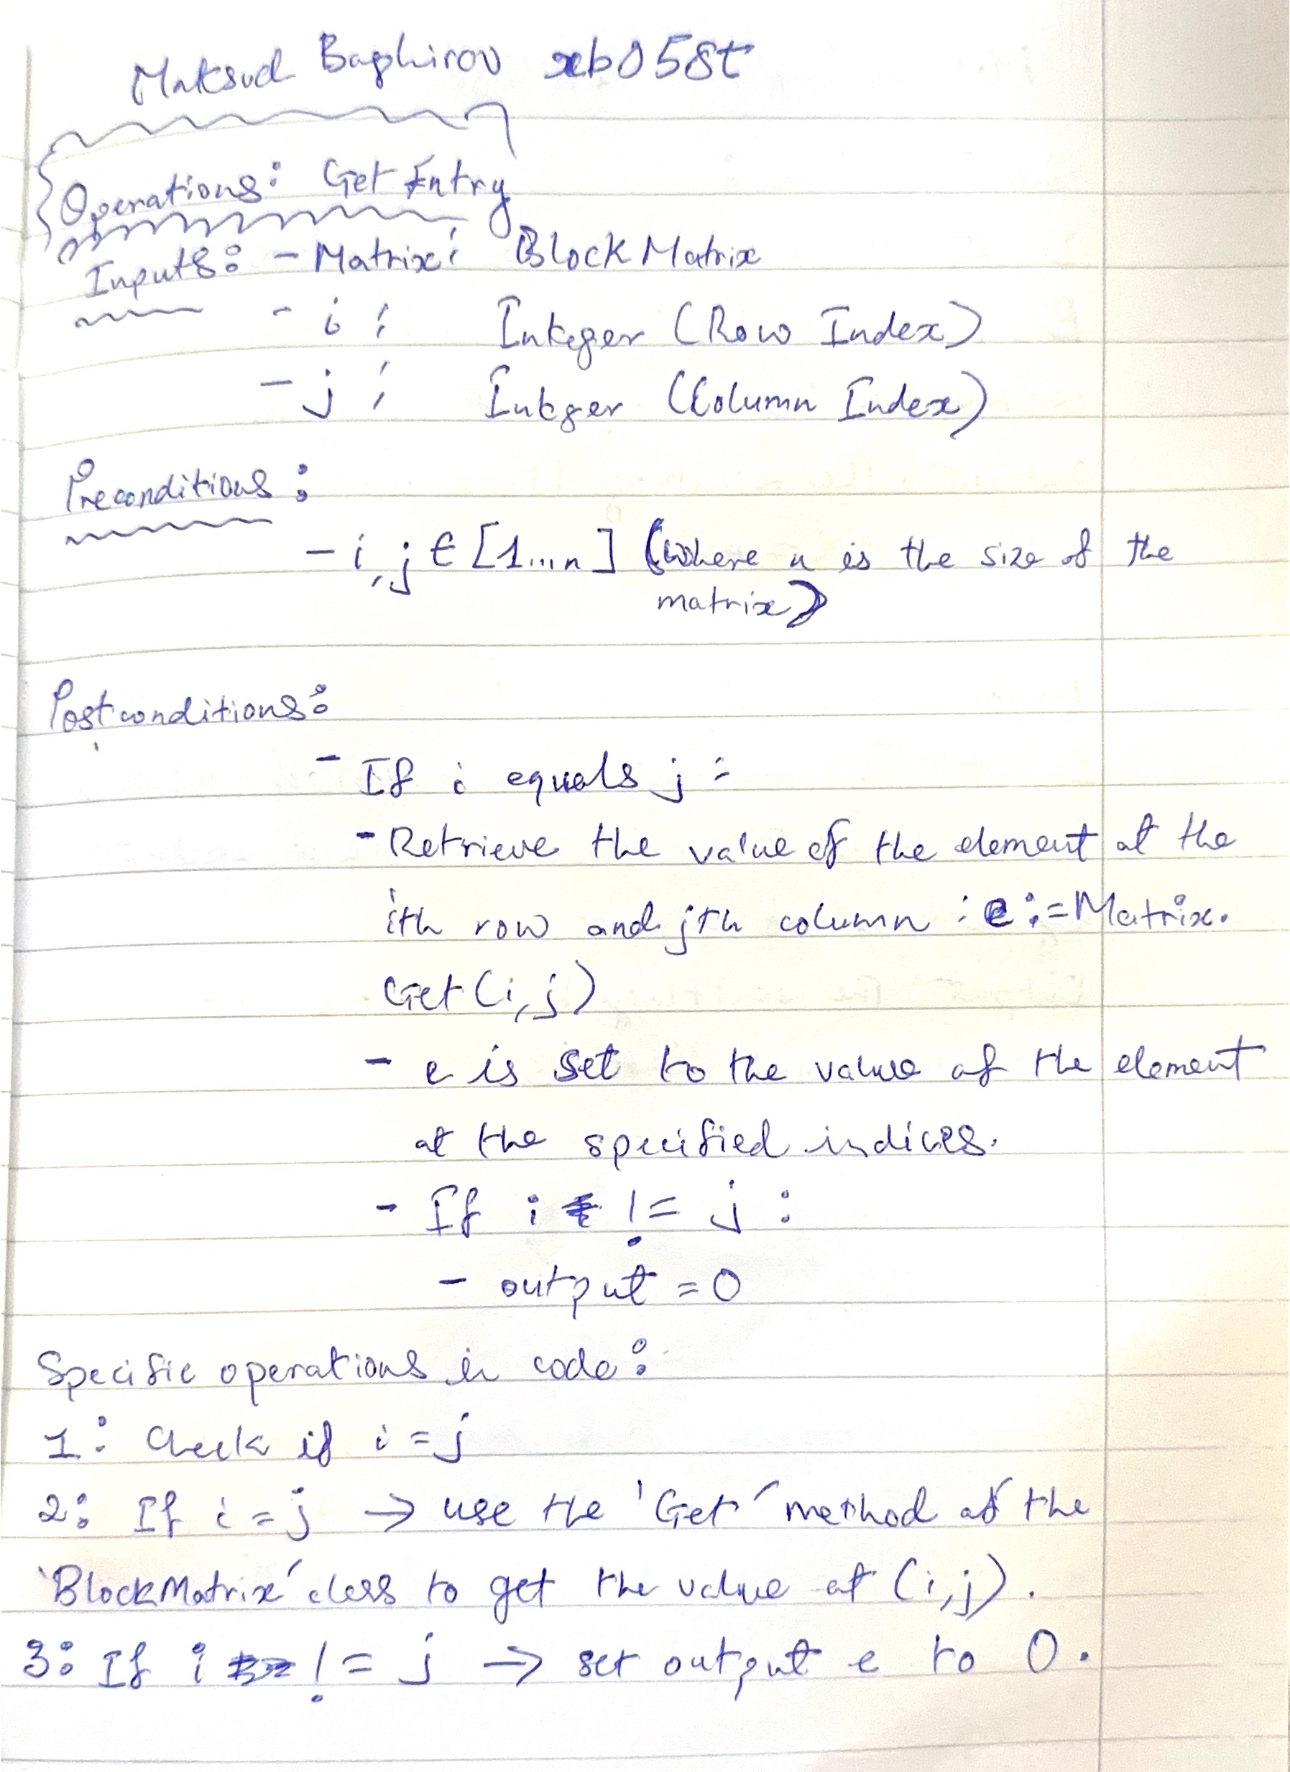 Maksud Baghirov xb058t
Operations: Get Entry
Inputs: - Matrix: BlockMatrix
- i : Integer (Row Index)
- j : Integer (Column Index)
Preconditions :
- i,j ∈ [1...n] (where n is the size of the
matrix)
Postconditions:
- If i equals j :
- Retrieve the value of the element at the
ith row and jth column : e := Matrix.
Get (i, j)
- e is set to the value of the element
at the specified indices.
- If i != j :
- output = 0
Specific operations in code:
1: Check if i = j
2: If i = j → use the 'Get' method of the
'BlockMatrix' class to get the value at (i,j).
3: If i != j → set output e to 0.